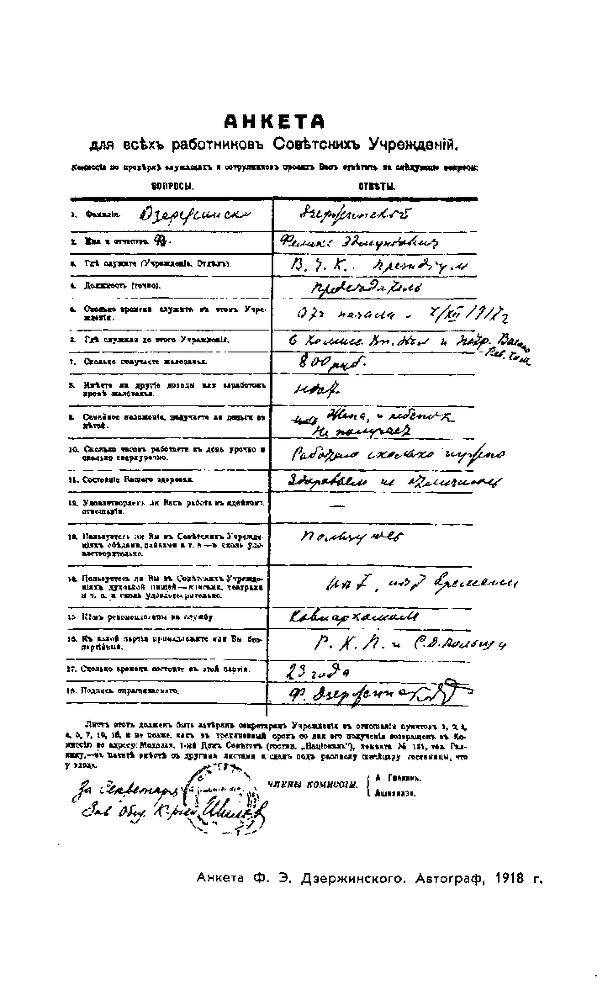 АНКЕТА
для всѣхъ работниковъ Совѣтскихъ Учрежденій.
Комиссія по провѣркѣ служащихъ и сотрудниковъ проситъ Васъ отвѣтить на слѣдующіе вопросы:
ВОПРОСЫ. ОТВѢТЫ.
1. Фамилія. Дзержинск Дзержинской
2. Имя и отчество. Феликс Эдмундович
3. Гдѣ служите (Учрежденіе, Отдѣлъ). В. Ч. К. президіум
4. Должность (точно). председатель
5. Сколько времени служите въ этомъ Учре-
жденіи. От начала - 7/XII 1917 г
6. Гдѣ служили до этого Учрежденія. в Комисс. Вн. Дел и Петр. Военно
Рев. Ком.
7. Сколько получаете жалованья. 800 руб.
8. Имѣете ли другіе доходы или заработокъ
кромѣ жалованья. нет.
9. Семейное положеніе, получаете ли деньги на
дѣтей. Жена, и ребенок
Не получает
10. Сколько часовъ работаете въ день урочно и
сколько сверхурочно. Работаю сколько нужно
11. Состояніе Вашего здоровья. Здоровьем не отличаюсь
12. Удовлетворяетъ ли Васъ работа въ идейномъ
отношеніи. —
13. Пользуетесь ли Вы въ Совѣтскихъ Учрежде-
ніяхъ обѣдами, пайками и т. п.—и сколь удо-
влетворительно. Пользуюсь
14. Пользуетесь ли Вы въ Совѣтскихъ Учрежде-
ніяхъ духовной пищей—книгами, театрами
и т. п. и сколь удовлетворительно. нет, нет времени
15. Кѣмъ рекомендованы на службу Совнаркомом
16. Къ какой партіи принадлежите или Вы без-
партійный. Р. К. П. и С. Д. Польши
17. Сколько времени состоите въ этой партіи. 23 года
18. Подпись опрашиваемаго. Ф. Дзержинской
Листъ этотъ долженъ быть завѣренъ секретаремъ Учрежденія въ отношеніи пунктовъ 1, 2, 3,
4, 5, 7, и не позже, какъ въ трехдневный срокъ со дня его полученія возвращенъ въ Ко-
миссію по адресу: 1-й Домъ Совѣтовъ (гостин. „Націоналъ"), комната № 131,
въ пакетѣ вмѣстѣ съ другими листами и сданъ подъ расписку швейцару гостиницы, что
у входа.
ЧЛЕНЫ КОМИССІИ.
За Секретаря
Зав Общ.
Анкета Ф. Э. Дзержинского. Автограф, 1918 г.